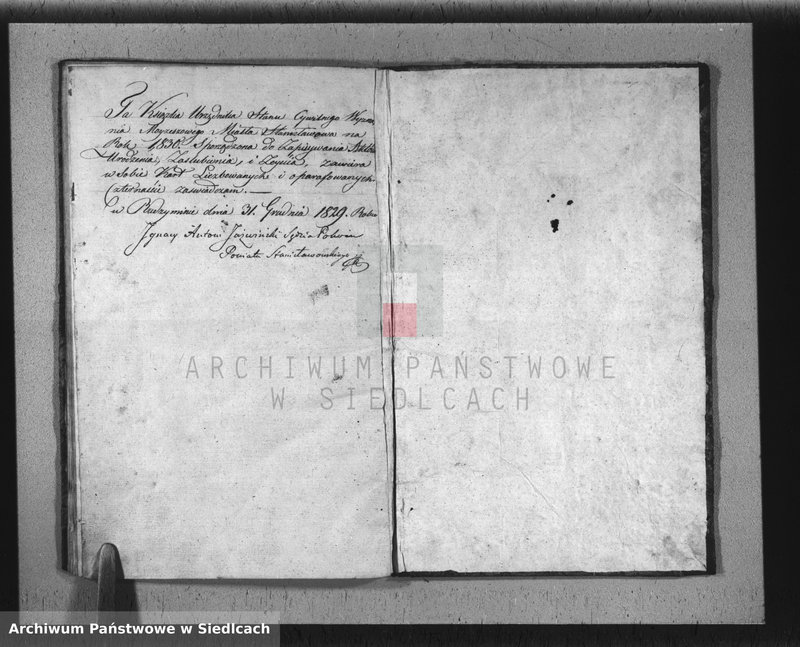 Ta Książka Urzędnika Stanu Cywilnego Wyzna
nia Moyżeszowego Miasta Stanisławowa na
Rok 1830. Sporządzona do Zapisywania Aktów
Urodzenia, Zaślubienia, i Zeyścia, zawiera
w Sobie Kart Liczbowanych i oparafowanych
Czternaście zaświadczam.—
w Radzyminie dnia 31. Grudnia 1829. Roku
Ignacy Antoni Jaźwiński Sędzia Pokoiu
Powiatu Stanisławowskiego
ARCHIWUM PAŃSTWOWE
W SIEDLCACH
Archiwum Państwowe w Siedlcach